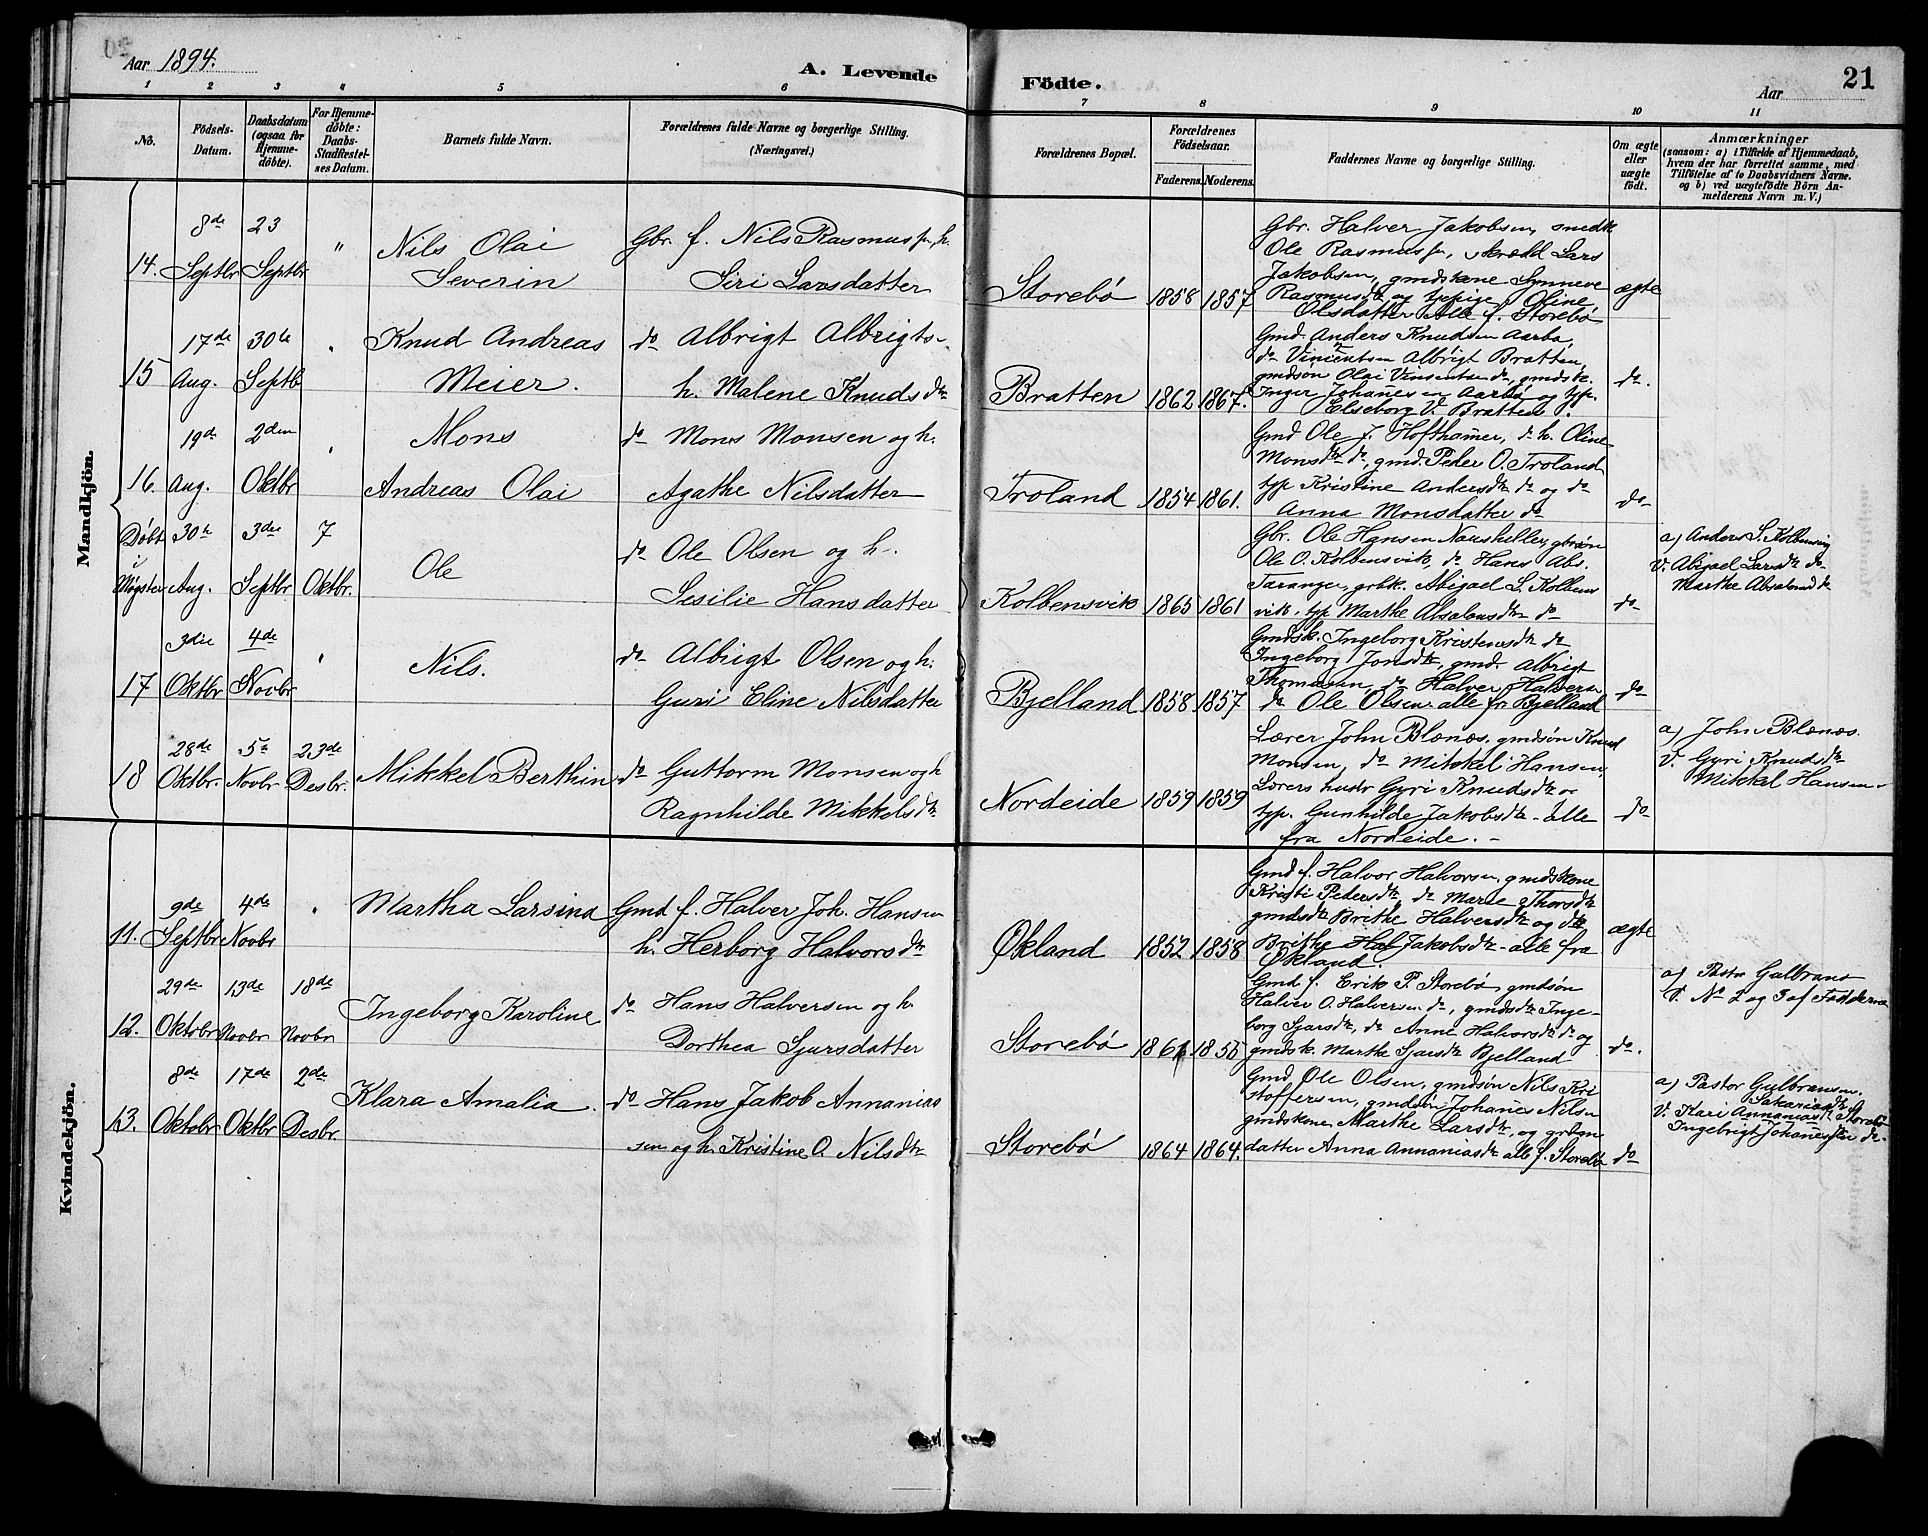 Aar 1894.
A. Levende Födte.
Aar
21
1 2 3 4 5 6 7 8 9 10 11
No.
Födsels-Datum.
Daabsdatum (ogsaa for Hjemme-döbte).
For Hjemme-döbte: Daabs-Stadfæstel-ses Datum.
Barnets fulde Navn.
Forældrenes fulde Navne og borgerlige Stilling.
(Næringsvei.)
Forældrenes Bopæl.
Forældrenes Födselsaar.
Faderens. Moderens.
Faddernes Navne og borgerlige Stilling.
Om ægte eller uægte födt.
Anmærkninger
(saasom: a) i Tilfælde af Hjemmedaab,
hvem der har forrettet samme, med
Tilföielse af to Daabsvidners Navne.
og b) ved uægtefödte Börn An-
melderens Navn m. V.)
Mandkjön.
14. 8de Septbr 23 Septbr "
Nils Olai
Severin
Gbr. f. Nils Rasmuss., h.
Siri Larsdatter
Storebö 1858 1857
Gbr. Halver Jakobsen, smedk
Ole Rasmuss, skrædd Lars
Jakobsen, gmdskone Synneve
Rasmusdtr og typige Oline
Olsdatter Alle f. Storebö
ægte
15 17de Aug. 30te Septb "
Knud Andreas
Meier.
do Albrigt Albrigts.
h. Malene Knudsdtr
Bratten 1862 1867.
Gmd. Anders Knudsen Aarbö,
do Vincentsen Albrigt Bratten,
gmdsön Olai Vinsentsen do, gmdsk.
Inger Johannesen Aarbö og typ.
Elseborg V. Bratten.
do.
16. 19d Aug. 2den Oktbr "
Mons
Andreas Olai
do Mons Monsen og h.
Agathe Nilsdatter
Troland 1854 1861.
Gmd Ole J. Hofthamer, do h. Oline
Monsdtr do, gmd. Peder O. Troland
typ Kristine Andersdtr do og do
Anna Monsdatter do
do
Døbt i Møgster 30te Aug. 3die Septbr 7 Oktbr.
Ole
do Ole Olsen og h.
Sesilie Hansdatter
Kolbensvik 1865 1861
Gbr. Ole Hansen Nausheller, gbrsön
Ole O. Kolbensvik, do Hans Abs.
Taranger, grbk. Abigael L. Kolbens
vik, typ Marthe Absalonsdtr do
do
a) Anders S. Kolbensvig
V. Abigael Larsdtr do
Marthe Absalonsdtr
17 3die Oktbr 4de Novbr "
Nils.
do Albrigt Olsen og h.
Guri Eline Nilsdatter
Bjelland 1858 1857
Gmdsk. Ingeborg Kristensdtr do
Ingeborg Jonsdtr, gmd. Albrigt
Thomasen, do Halver Halvers.
do Ole Olsen alle fr Bjelland
do
18 28de Oktbr. 5te Novbr 23de Desbr.
Mikkel Berthin
do Guttorm Monsen og h
Ragnhilde Mikkelsdtr
Nordeide 1859 1859
Lærer John Blænæs, gmdsön Knud
Monsen, do Mikkel Hansen,
Lærers hustr Gyri Knudsdtr og
typ. Gunhilde Jakobsdtr - alle
fra Nordeide. -
do
a) John Blænæs.
V. Gyri Knudsdtr
Mikkel Hansen
Kvindekjön.
11. 9de Septbr 4de Novbr "
Martha Larsina
Gmd f. Halver Joh. Hansen
h. Herborg Halvorsdtr
Økland 1852 1858
Gmd f. Halvor Halvorsen, gmdskone
Kristi Pedersdtr, do Marie Thorsdtr
gmdsdtr Brithe Halversdtr og do
Brithe Hal Jakobsdtr - alle fra
Økland
ægte
12. 29de Oktobr 13de Novbr 18de Novbr
Ingeborg Karoline
do Hans Halversen og h.
Dorthea Sjursdatter
Storebö 1861 1855
Gmd f. Erik P. Storebö, gmdsön
Halver O. Halversen do, gmdsdtr Inge-
borg Sjursdtr, do Anne Halvorsdtr do og
gmdsk. Marthe Sjursdtr Bjelland
do.
a) Pastor Gulbrans
V. No 2 og 3 af Fadderne
13. 8de Oktobr 17de Oktbr 2de Desbr.
Klara Amalia.
do Hans Jakob Annanias
sen og h. Kristine O. Nilsdtr
Storebö 1864 1864.
Gmd Ole Olsen, gmdsön Nils Kri
stoffersen, gmdsön Johanes Nilsen
gmdskone Marthe Larsdtr, og
datter Anna Annaniasdtr alle f. Storebö
do
a) Pastor Gulbransen.
Sakariasdtr
V. Kari Annaniasdtr Storebö
Ingebrigt Johanessen do